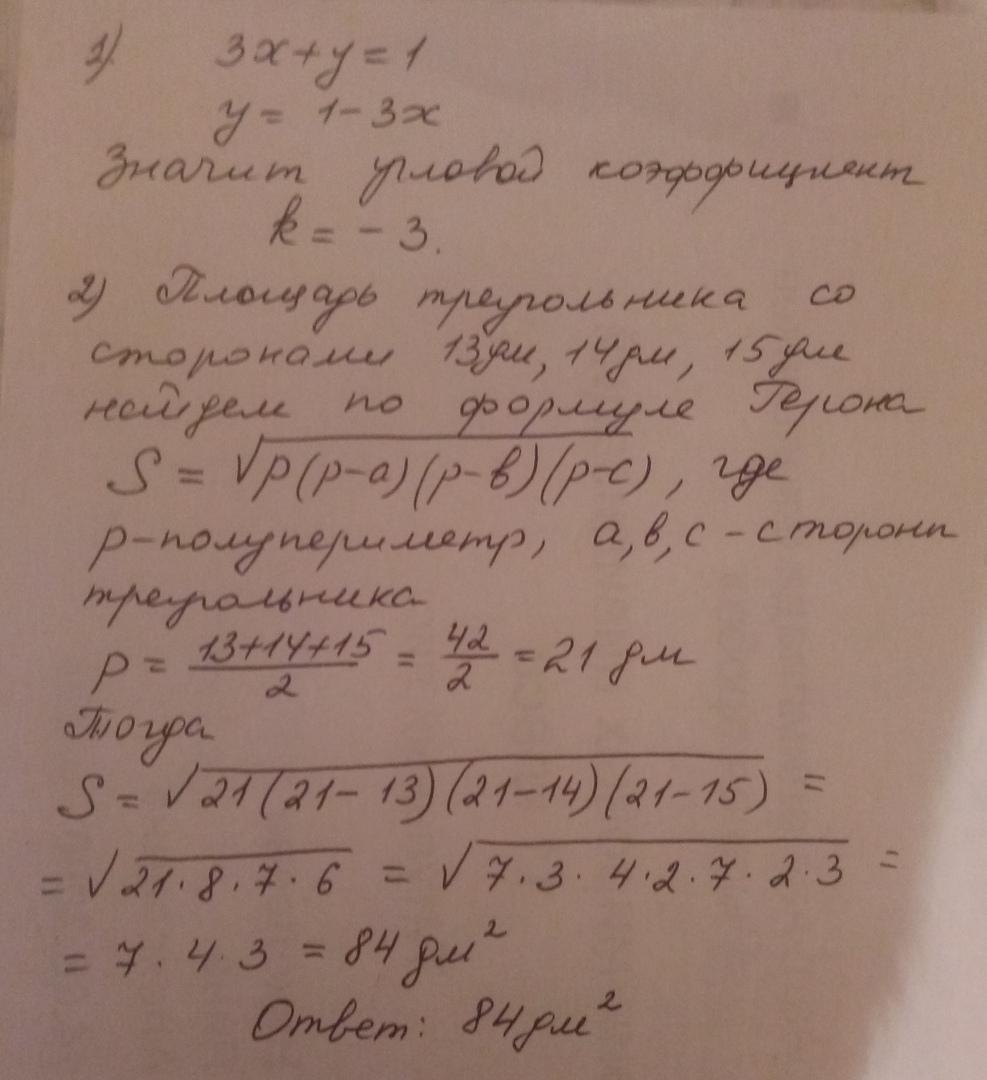 1) 3x+y=1
y = 1-3x
Значит угловой коэффициент
k = -3.
2) Площадь треугольника со
сторонами 13дм, 14дм, 15дм
найдем по формуле Герона
S = √p(p-a)(p-в)(p-c), где
p-полупериметр, a,в,c - стороны
треугольника
p = 13+14+15/2 = 42/2 = 21 дм
Тогда
S = √21(21-13)(21-14)(21-15) =
= √21·8·7·6 = √7·3·4·2·7·2·3 =
= 7·4·3 = 84 дм²
Ответ: 84дм²